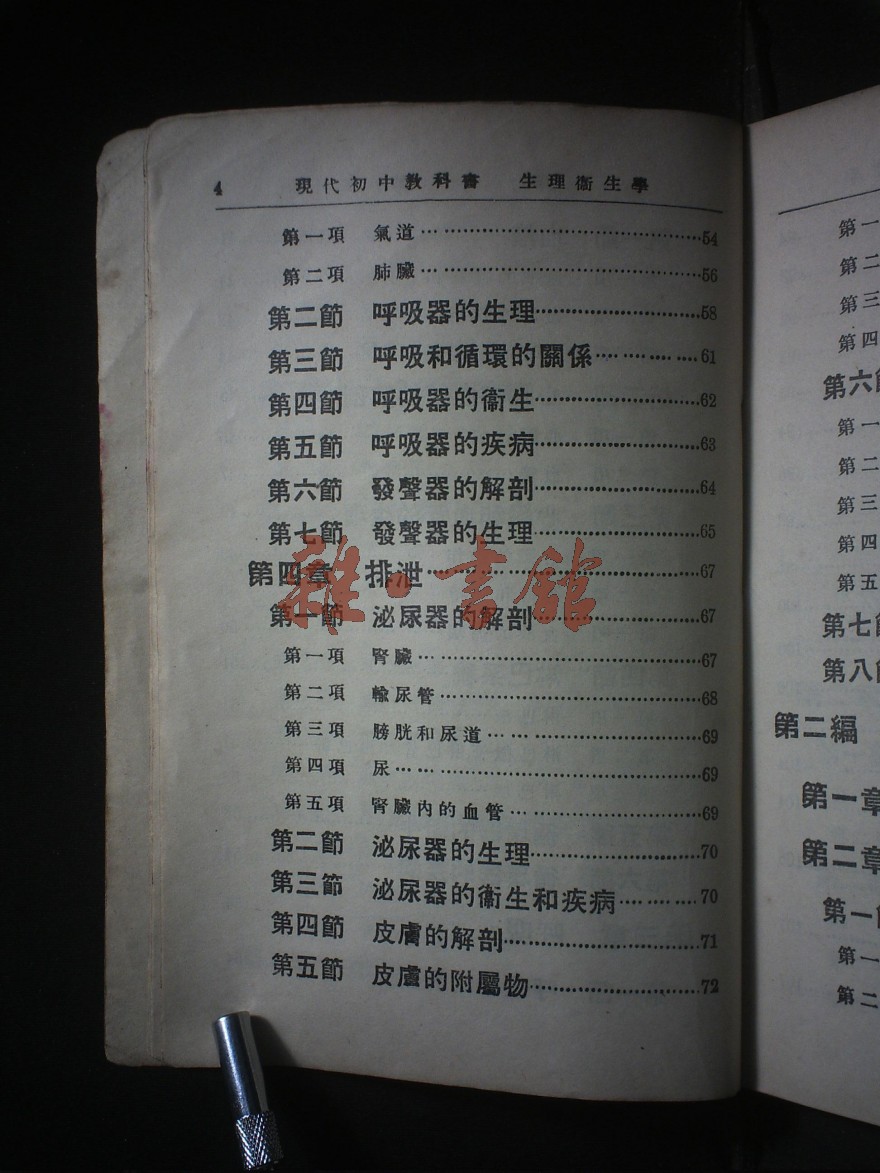 4 現代初中教科書 生理衞生學
第一項 氣道…………………………54
第二項 肺臟…………………………56
第二節 呼吸器的生理………………58
第三節 呼吸和循環的關係…………61
第四節 呼吸器的衞生………………62
第五節 呼吸器的疾病………………63
第六節 發聲器的解剖………………64
第七節 發聲器的生理………………65
第四章 排泄…………………………67
第一節 泌尿器的解剖………………67
第一項 腎臟…………………………67
第二項 輸尿管………………………68
第三項 膀胱和尿道…………………69
第四項 尿……………………………69
第五項 腎臟內的血管………………69
第二節 泌尿器的生理………………70
第三節 泌尿器的衞生和疾病………70
第四節 皮膚的解剖…………………71
第五節 皮膚的附屬物………………72
雜·書館
第一
第二
第三
第四
第六
第一
第二
第三
第四
第五
第七
第八
第二編
第一章
第二章
第一
第一
第二